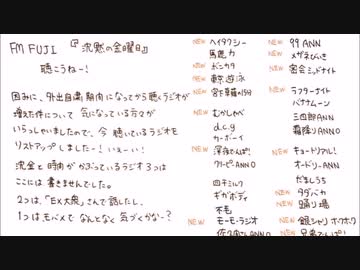 FM FUJI 『沈黙の金曜日』
聴こうねー！
因みに、外出自粛期間になってから聴くラジオが
増えた件について 気になっている方々が
いらっしゃいましたので、今 聴いているラジオを
リストアップしましたー！ いぇーい！
沈金と時間がかぶっているラジオ3つは
ここには書きませんでした。
2つは、「EX大衆」さんで話したし、
1つはモバメでなんとなく気づくかなー？
NEW ヘイタクシー
馬鹿力
NEW ポンコツ
NEW 東京遊泳
NEW
NEW むかしゃべ
d.c.g
カーボーイ
NEW 深夜でんぱ！
クリーピーANN0
四千ミルク
ギガボディ
不毛
NEW モーモーラジオ
佐久間さんANN0
NEW 99 ANN
NEW メガネびいき
NEW 密会ミッドナイト
NEW ラフターナイト
バナナムーン
三四郎ANN
霜降りANN0
NEW キュートリアル！
オードリーANN
だましうち
NEW タダバカ
NEW 踊り場
NEW 銀シャリ ホクホク
NEW 兄弟でんぱ！